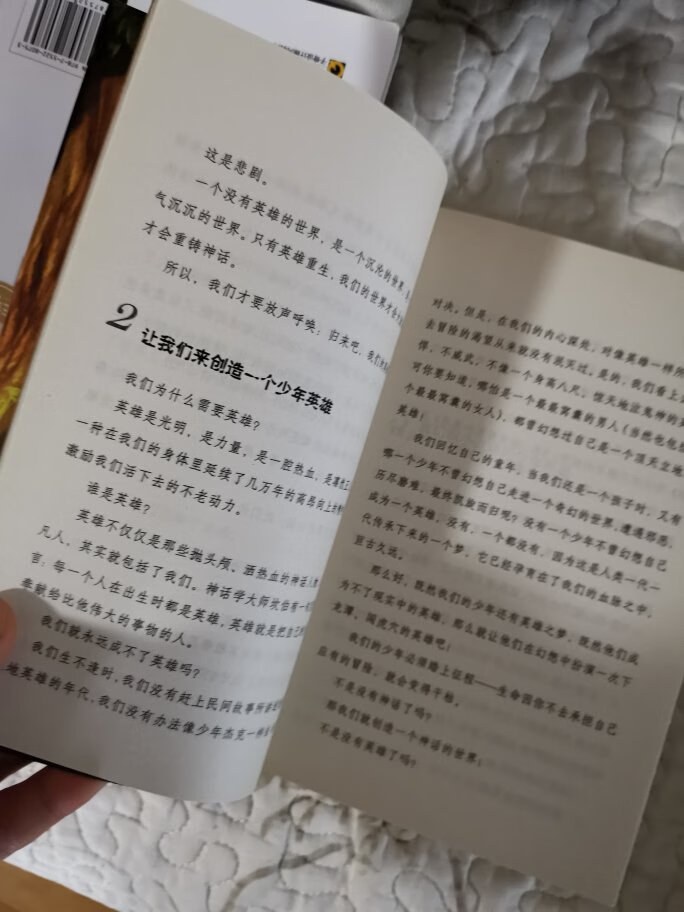 这是悲剧。
一个没有英雄的世界，是一个沉沦的世界，
气沉沉的世界。只有英雄重生，我们的世界才会
才会重铸神话。
所以，我们才要放声呼唤：归来吧，我们的
2
让我们来创造一个少年英雄
我们为什么需要英雄？
英雄是光明，是力量，是一腔热血，是
一种在我们的身体里延续了几万年的高昂向上
激励我们活下去的不老动力。
谁是英雄？
英雄不仅仅是那些抛头颅、洒热血的神话人
凡人，其实就包括了我们。神话学大师坎伯有一
言：每一个人在出生时都是英雄，英雄就是把自己
奉献给比他伟大的事物的人。
我们就永远成不了英雄吗？
我们生不逢时，我们没有赶上民间故事所
地英雄的年代，我们没有办法像少年杰克一样
对决。但是，在我们的内心深处，对像英雄一样所
去冒险的渴望从来就没有泯灭过。是的，我们看上去
悍，不威武，不像一个身高八尺、惊天地泣鬼神的
可你要知道，哪怕是一个最最窝囊的男人（当然也包括
个最最窝囊的女人），都曾幻想过自己是一个顶天立地
英雄！
我们回忆自己的童年，当我们还是一个孩子时，又有
哪一个少年不曾幻想自己走进一个奇幻的世界，遭遇邪恶，
历尽磨难，最终凯旋而归呢？没有一个少年不曾幻想自己
成为一个英雄，没有，一个都没有，因为这是人类一代一
代传承下来的一个梦，它已经孕育在了我们的血脉之中，
亘古久远。
那么好，既然我们的少年还有英雄之梦，既然他们成
为不了现实中的英雄，那么就让他们在幻想中扮演一次下
龙潭、闯虎穴的英雄吧！
我们的少年必须踏上征程——生命因你不去承担自己
应有的冒险，就会变得干枯。
不是没有神话了吗？
那我们就创造一个神话的世界！
不是没有英雄了吗？